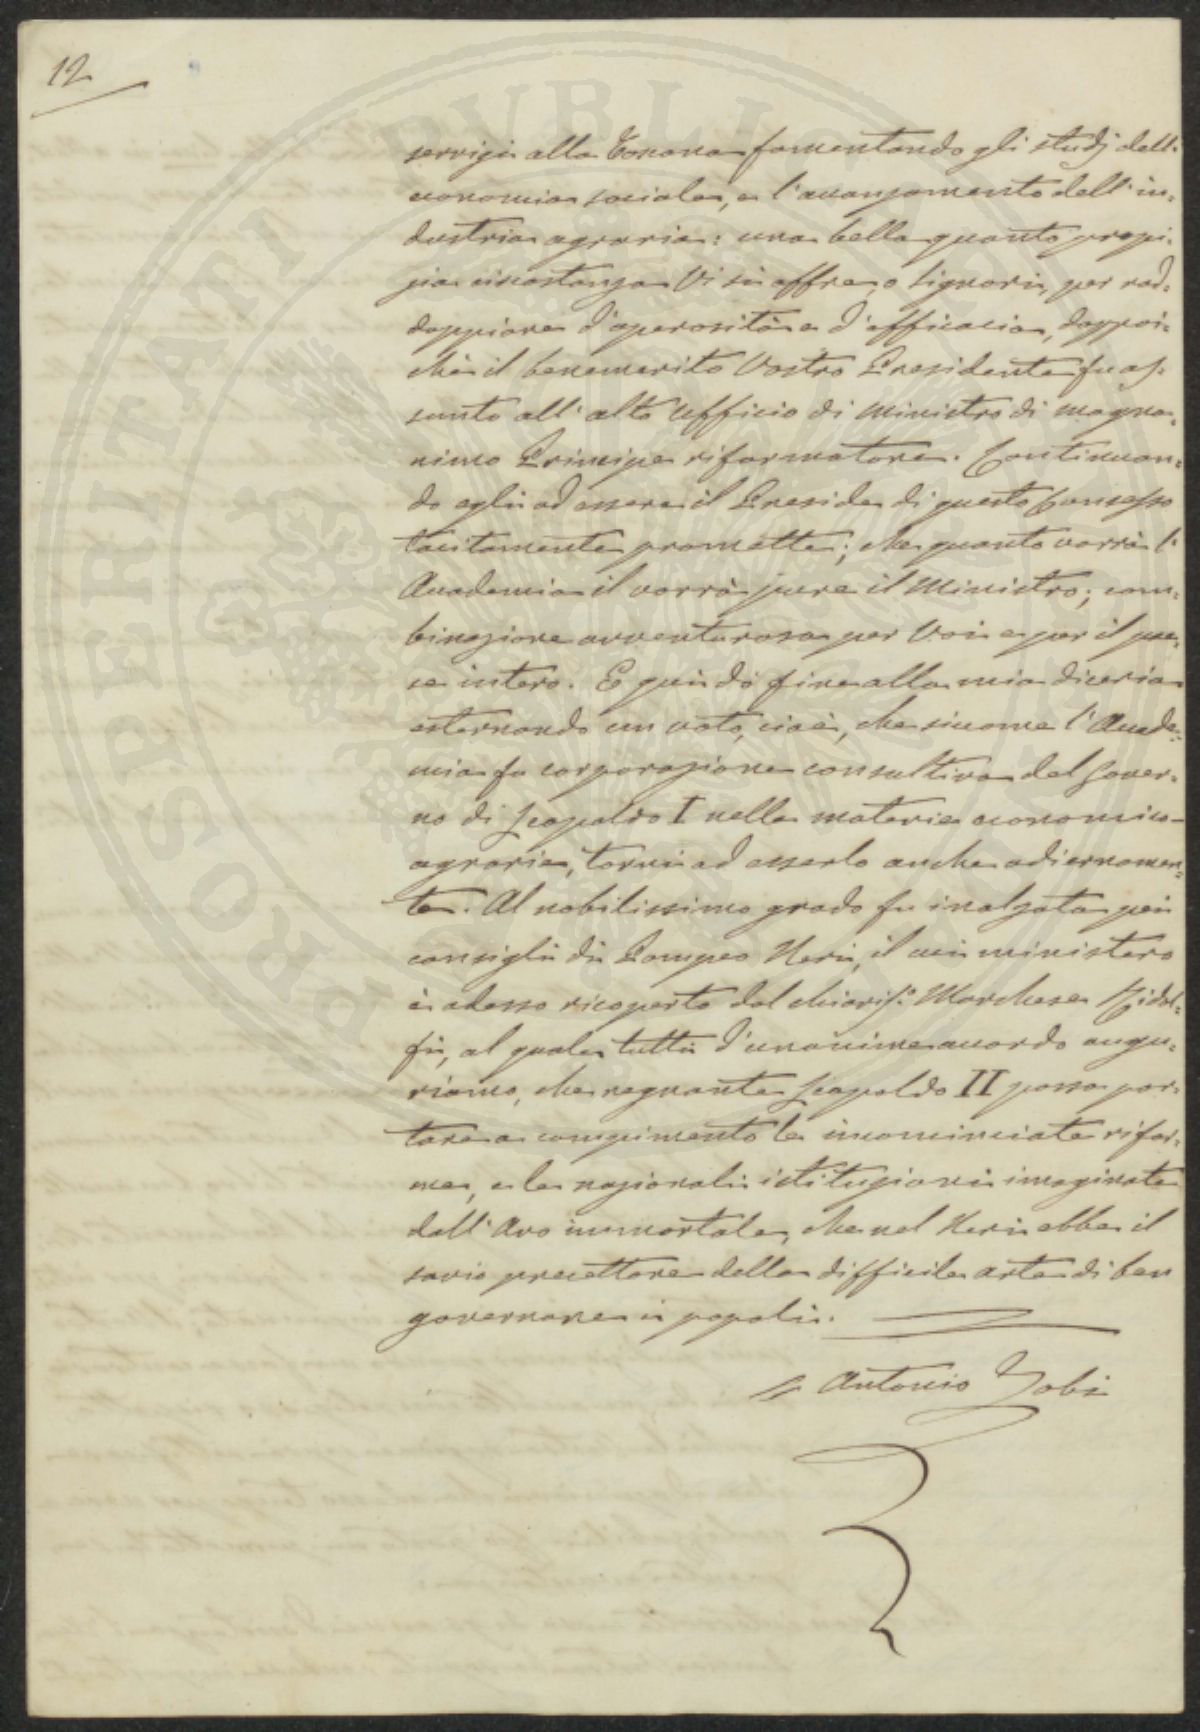 12
servizi alla Toscana fomentando gli studj dell'
economia sociale, e l'avanzamento dell'in-
dustria agraria: una bella quanto propi-
zia circostanza Vi si offre, o Signori, per rad-
doppiare d'operosità e d'efficacia, dappoi-
chè il benemerito Vostro Presidente fu as-
sunto all'alto Ufficio di Ministro di magna-
nimo Principe riformatore. Continuan-
do egli ad essere il Preside di questo Consesso
tacitamente promette; che quanto vorrà l'
Accademia il vorrà pure il Ministro; com-
binazione avventurosa per Voi e per il pae-
se intero. E qui dò fine alla mia diceria
esternando un voto, cioè, che siccome l'Accade-
mia fu corporazione consultiva del Gover-
no di Leopoldo I nelle materie economico-
agrarie, torni ad esserlo anche odiernamen-
te. Al nobilissimo grado fu inalzata pei
consigli di Pompeo Neri, il cui ministero
è adesso ricoperto dal chiariss.o Marchese Ridol-
fi, al quale tutti d'unanime accordo augu-
riamo, che regnante Leopoldo II possa por-
tare a compimento le incominciate rifor-
me, e le nazionali istituzioni imaginate
dall'Avo immortale, che nel Neri ebbe il
savio precettore della difficile arte di ben
governare i popoli.
Antonio Zobi
PROSPERITATI PUBLICAE